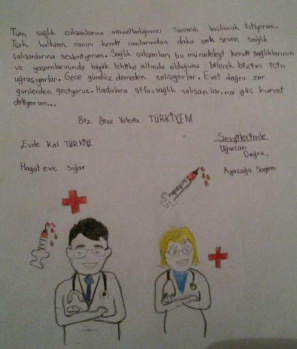 Tüm sağlık çalışanlarına minnettarlığımızı sunarak başlamak istiyorum.
Türk halkının canını kendi canlarından daha çok seven sağlık
çalışanlarına sesleniyorum. Sağlık çalışanları bu mücadeleyi kendi sağlıklarının
ve yaşamlarınında büyük tehlike altında olduğunu bilerek bizim için
uğraşıyorlar. Gece gündüz demeden çalışıyorlar. Evet doğru zor
günlerden geçiyoruz. Hastalara şifa, sağlık çalışanlarına güç kuvvet
diliyorum...
Biz Bize Yeteriz TÜRKİYEM
Evde Kal TÜRKİYE
Hayat eve sığar
Sevgilerimle
Uğurcan
Doğru,